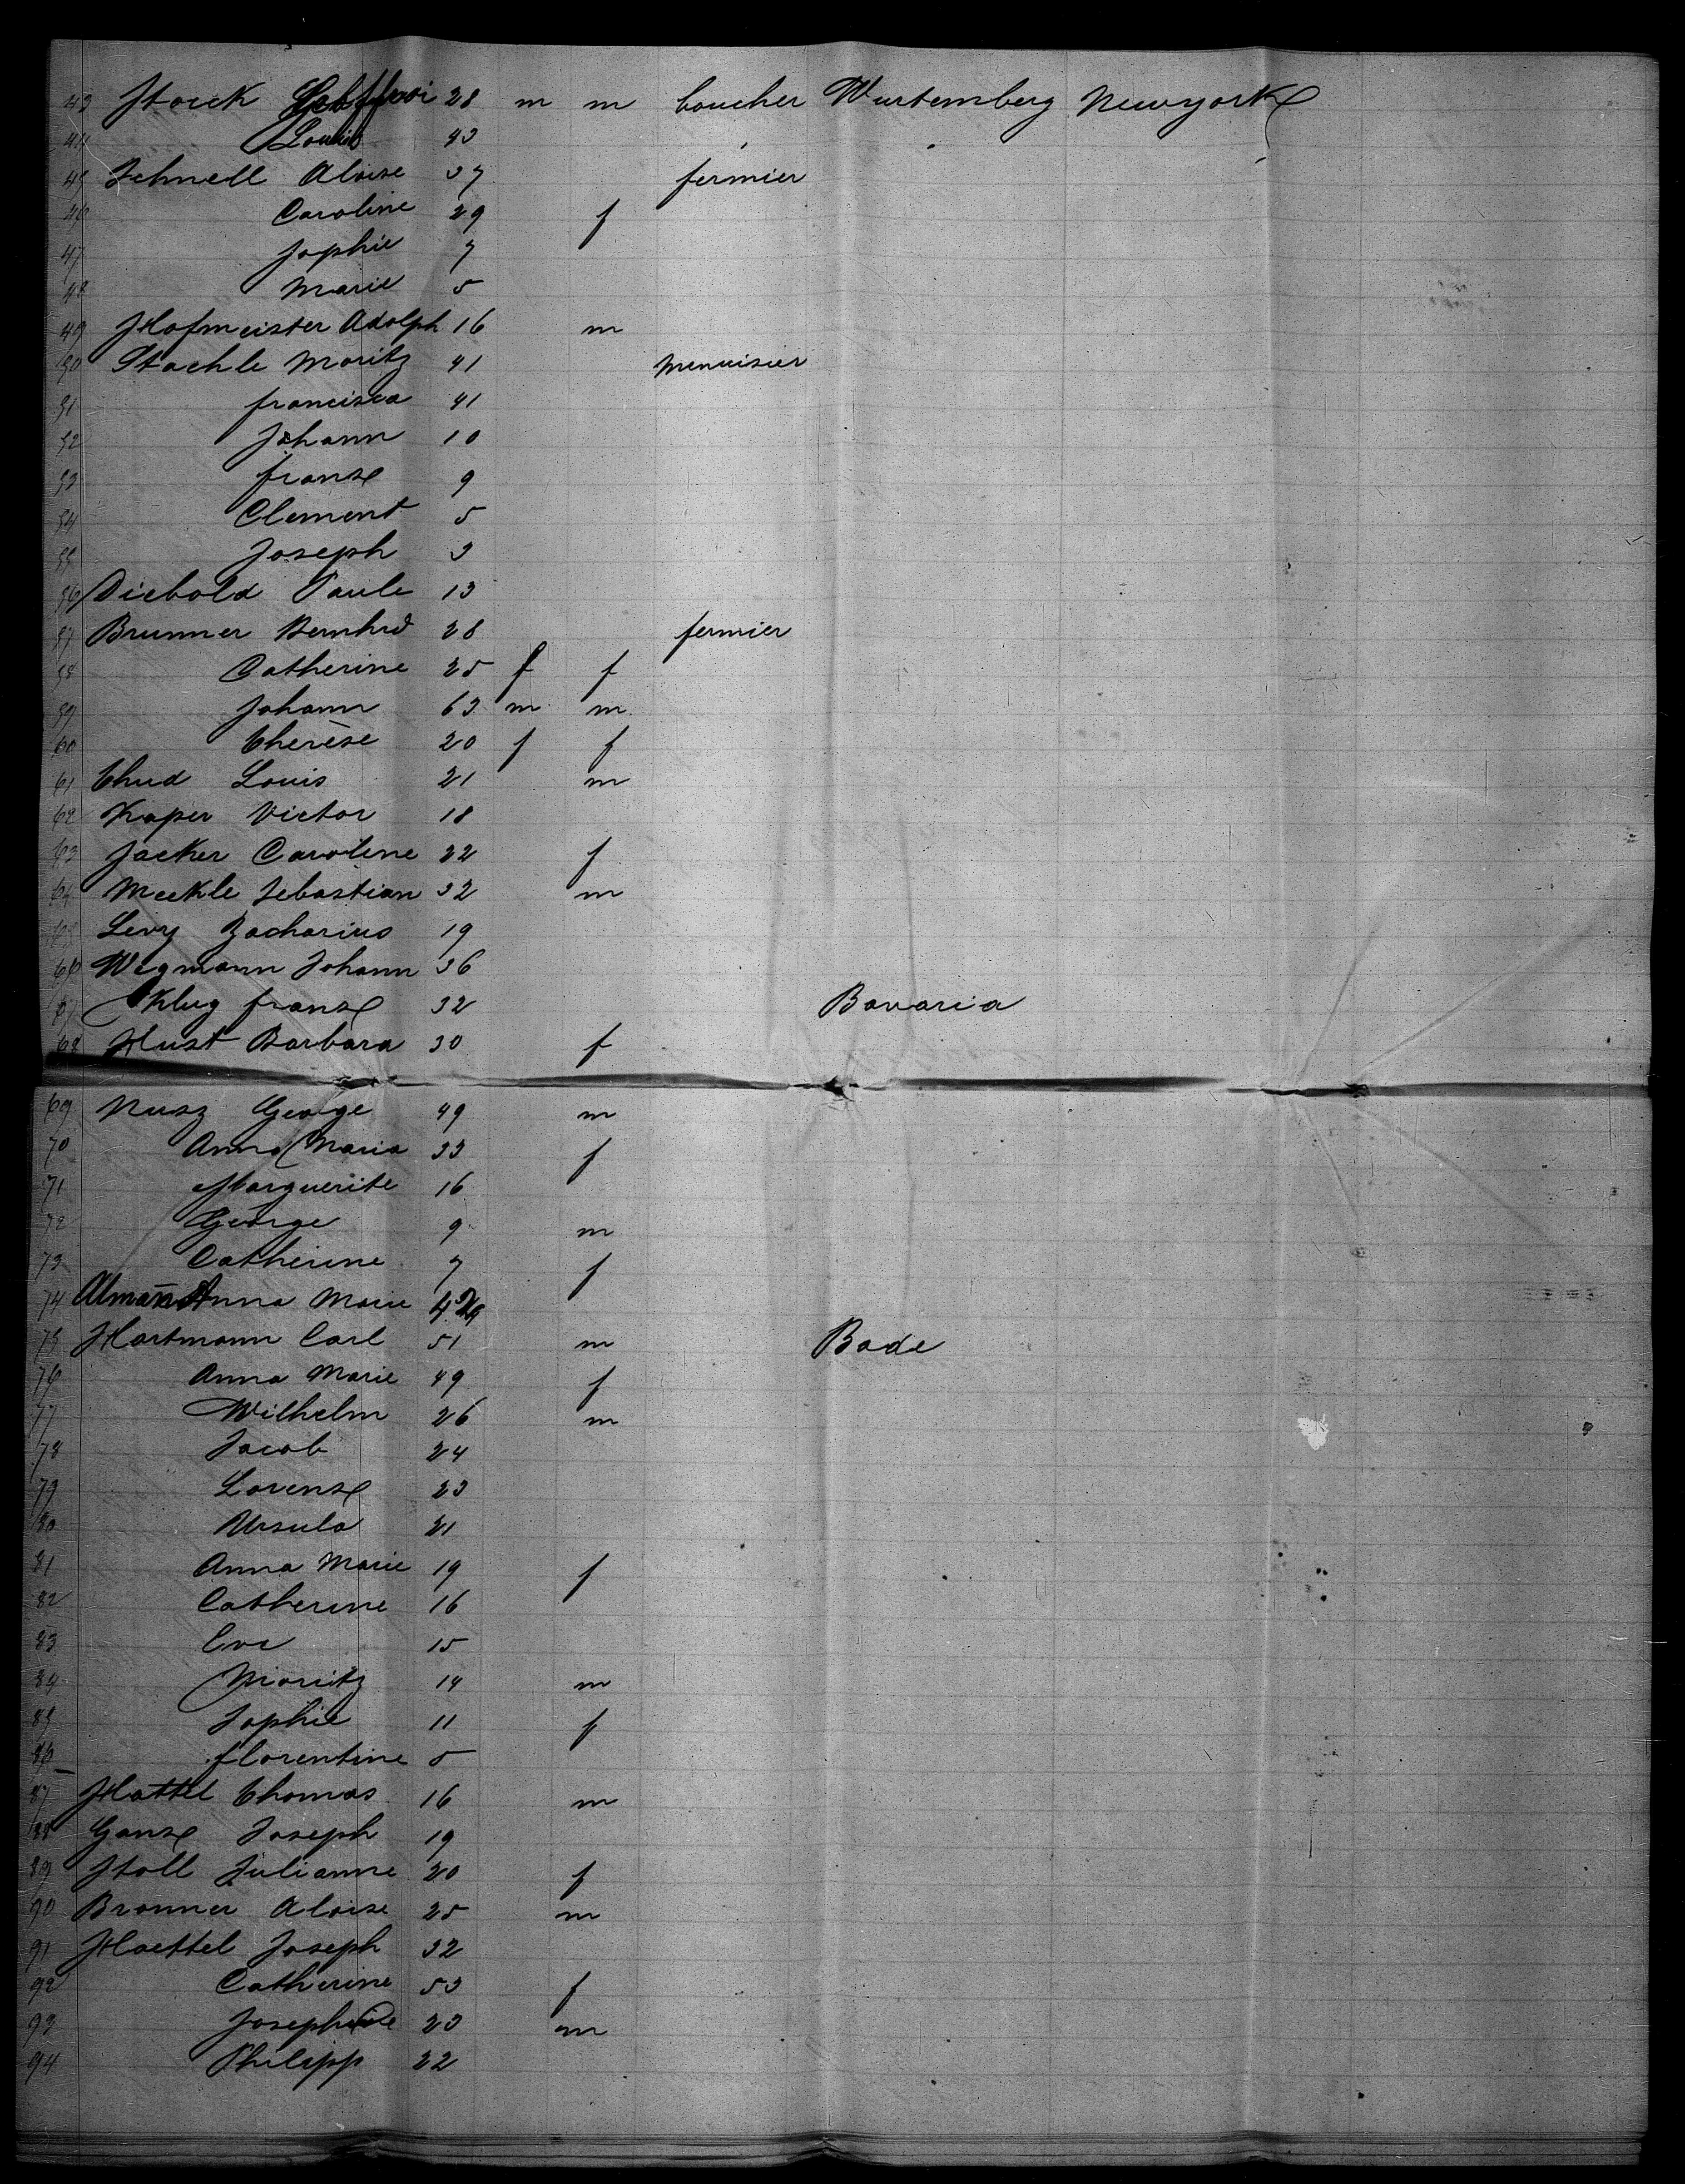 43 Storck Geoffroi 28 m m boucher Wurtemberg Newyork
44 Louis 43
45 Schnell Aloise 37 fermier
46 Caroline 29 f
47 Sophie 7
48 Marie 5
49 Hofmeister Adolph 16 m
50 Staehle Moritz 41 menuisier
51 francisca 41
52 Johann 10
53 franz 9
54 Clement 5
55 Joseph 3
56 Diebold Paule 13
57 Brunner Bernhrd 28 fermier
58 Catherine 25 f f
59 Johann 63 m m
60 Therèse 20 f f
61 Thud Louis 21 m
62 Kaper Victor 18
63 Jacker Caroline 22 f
64 Meckle Sebastian 32 m
65 Levy Zacharius 19
66 Wegmann Johann 36
67 Klug franz 32 Bavaria
68 Hust Barbara 30 f
69 Nusz George 49 m
70 Anna Maria 33 f
71 Marguerite 16
72 George 9 m
73 Catherine 7 f
74 Alman Anna Marie
75 Hartmann Carl 51 m Bade
76 Anna Marie 49 f
77 Wilhelm 26 m
78 Jacob 24
79 Lorenz 23
80 Ursula 21
81 Anna Marie 19 f
82 Catherine 16
83 Eva 15
84 Moritz 14 m
85 Sophie 11 f
86 florentine 5
87 Hattel Thomas 16 m
88 Ganz Joseph 19
89 Stoll Julianne 20 f
90 Bronner Aloise 25 m
91 Haettel Joseph 32
92 Catherine 53 f
93 Joseph 23 m
94 Philipp 22